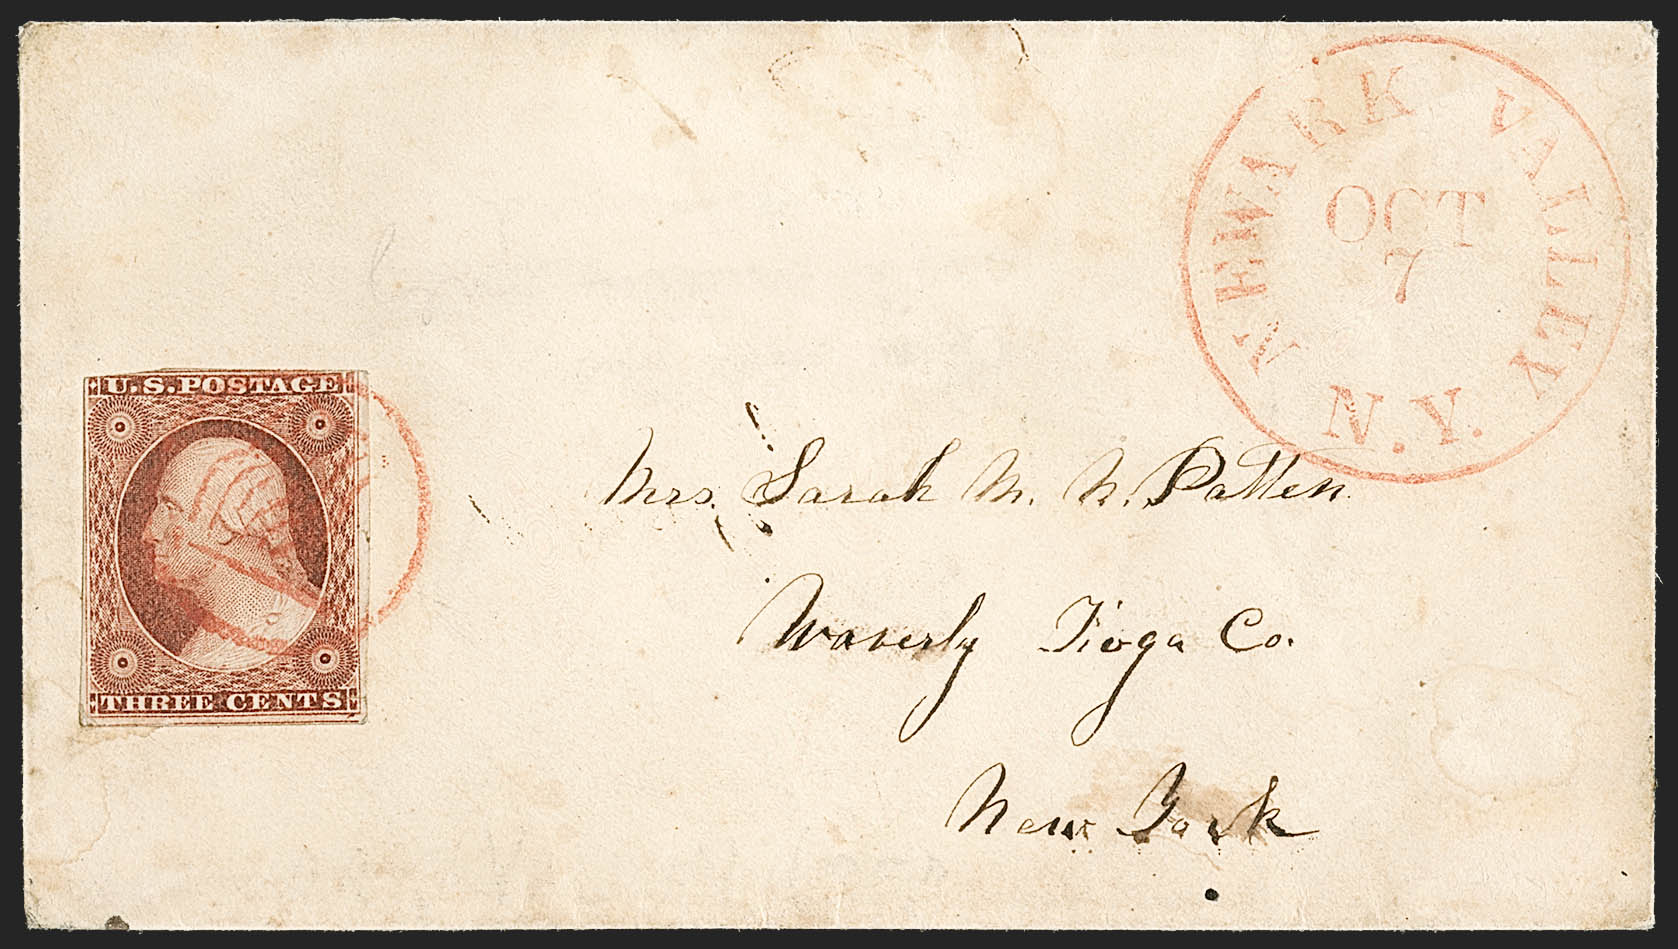 NEWARK VALLEY
OCT
7
N.Y.
U.S. POSTAGE
THREE CENTS
Mrs. Sarah M. N. Patten
Waverly Tioga Co.
New York